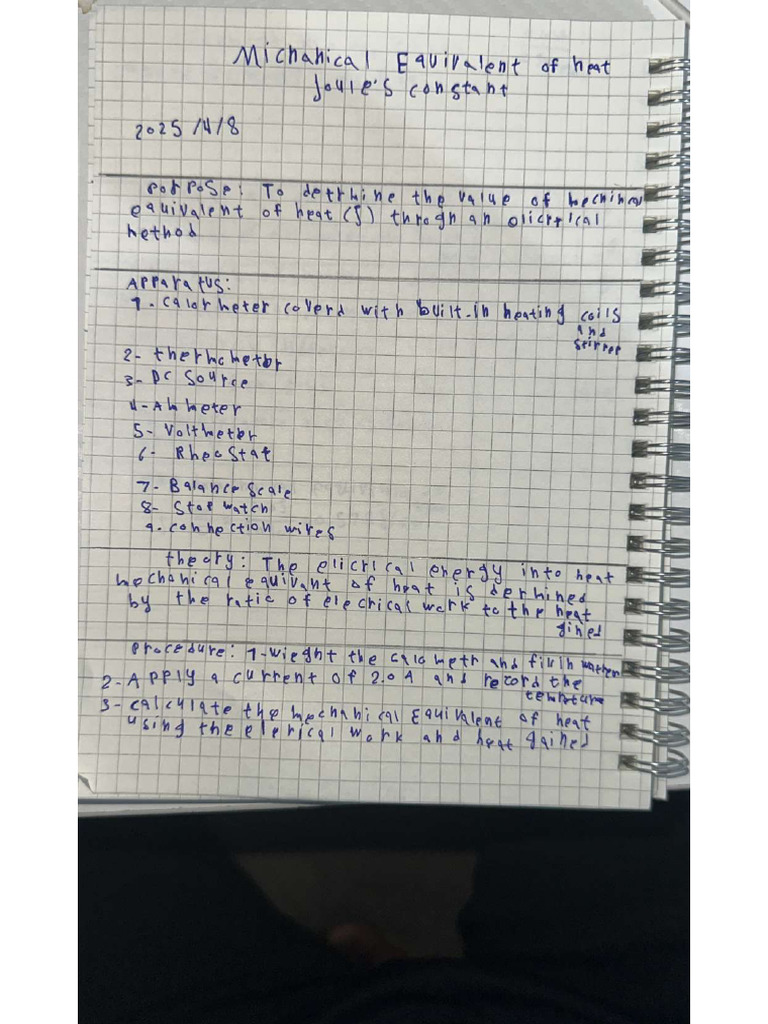 Michanical Equivalent of heat
Joule's constant
2025/4/8
Porpose: To detrmine the value of mechnical
equivalent of heat (J) throgh an olicrtical
method
Apparatus:
1- calormeter coverd with built-in heating coils
and
stirrer
2- thermometer
3- DC source
4- Ammeter
5- Voltmeter
6- Rheostat
7- Balance scale
8- Stop watch
9. connection wires
theory: The elicrical energy into heat
mechanical equivant of heat is dermined
by the ratio of elecrical work to the heat
gined
procedure: 1- wieght the calometr and fill in water
2- Apply a current of 2.0A and record the
temprture
3- calculate the mechanical Equivalent of heat
using the elerical work and heat gained